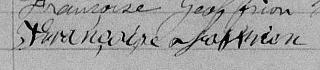 Françoise Geoffrion
Françoise Joffrion